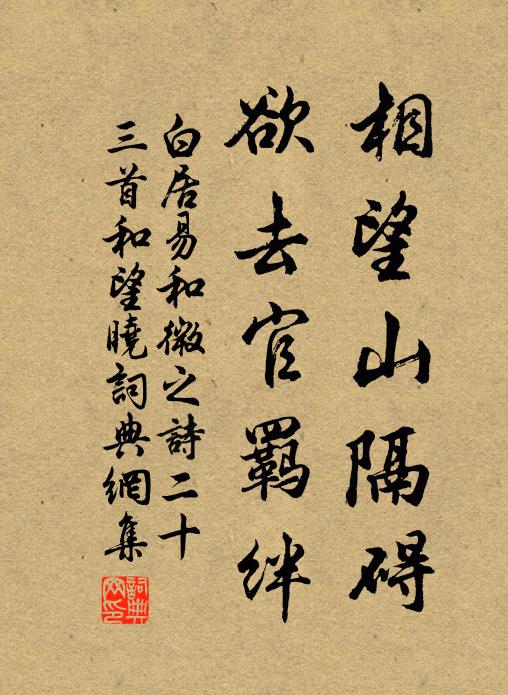 相望山隔碍
欲去官羁絆
白居易和微之詩二十
三首和望曉詞典網集
詞典网印